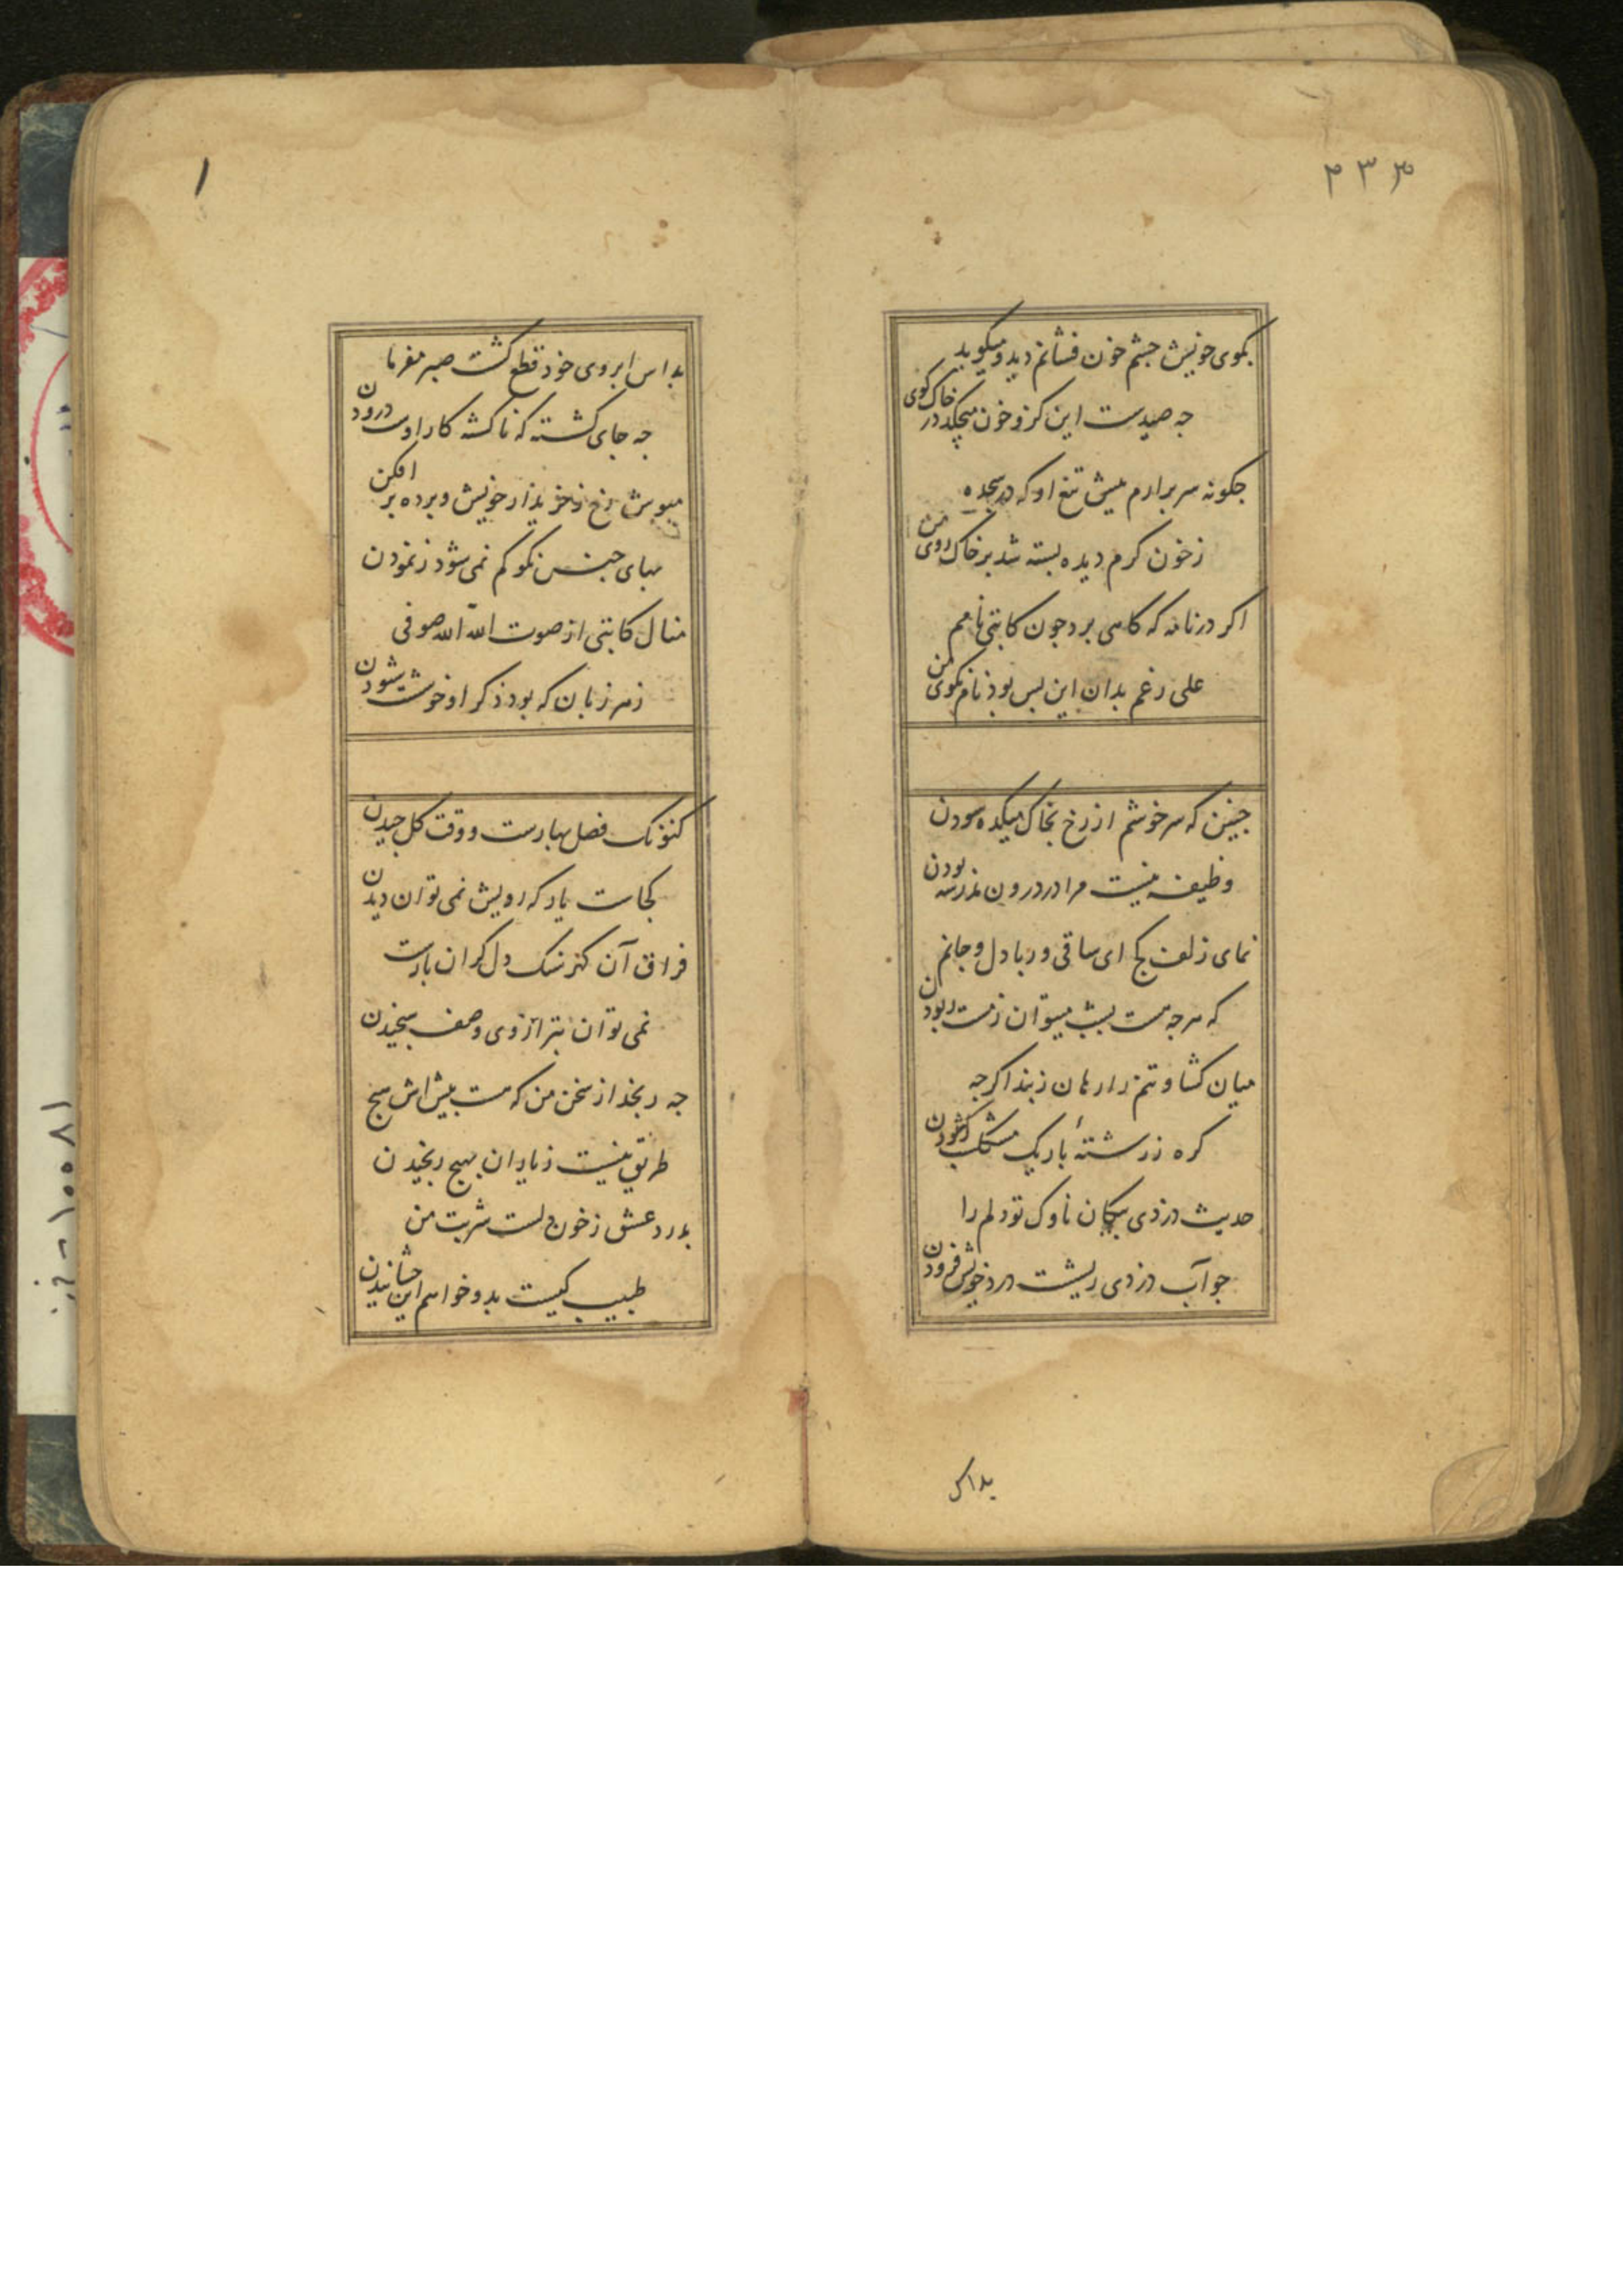 ۴۳۳
بکوی خویش جشم خون فشانم دید و میکوید
جه صیدست این کزو خون میجکد در خاک کوی
جکونه سر برارم پیش تیغ او که در سجده
ز خون کرم دیده بسته شد بر خاک روی من
اکر در نامه که کاهی برد جون کاتبی نامم
علی رغم بدان این بس بود نام نکوی من
جنین که سرخوشم از رخ بخاک میکده سودن
وظیفه نیست مرا در درون مدرسه بودن
نمای زلف کج ای ساقی و ربا دل و جانم
که هرجه هست بشب میتوان ز مست ربودن
میان کشا و تنم را رهان ز بند اکرجه
کره ز رشتهٔ باریک مشکلست کشودن
حدیث دزدی پیکان ناوک تو دلم را
جو آب دزدی ریشست درد خویش فزودن
بداس
۱
بداس ابروی خود قطع کشت صبر مفرما
جه جای کشته که ناکشته کار اوست درودن
مپوش رخ ز خریدار خویش و برده بر افکن
بهای جنس نکو کم نمی شود ز نمودن
منال کاتبی از صوت الله الله صوفی
ز هر زبان که بود ذکر او خوشست شنودن
کنونک فصل بهارست و وقت کل جیدن
کجاست یار که رویش نمی توان دیدن
فراق آن کز سنک دل کران بارست
نمی توان بترازوی وصف سنجیدن
جه رنجد از سخن من که هست پیش اش هیج
طریق نیست ز یاران بهیج رنجیدن
بدرد عشق ز خون دلست شربت من
طبیب کیست بدو خواهم این جشانیدن
۱۰۵۸۱ - خ